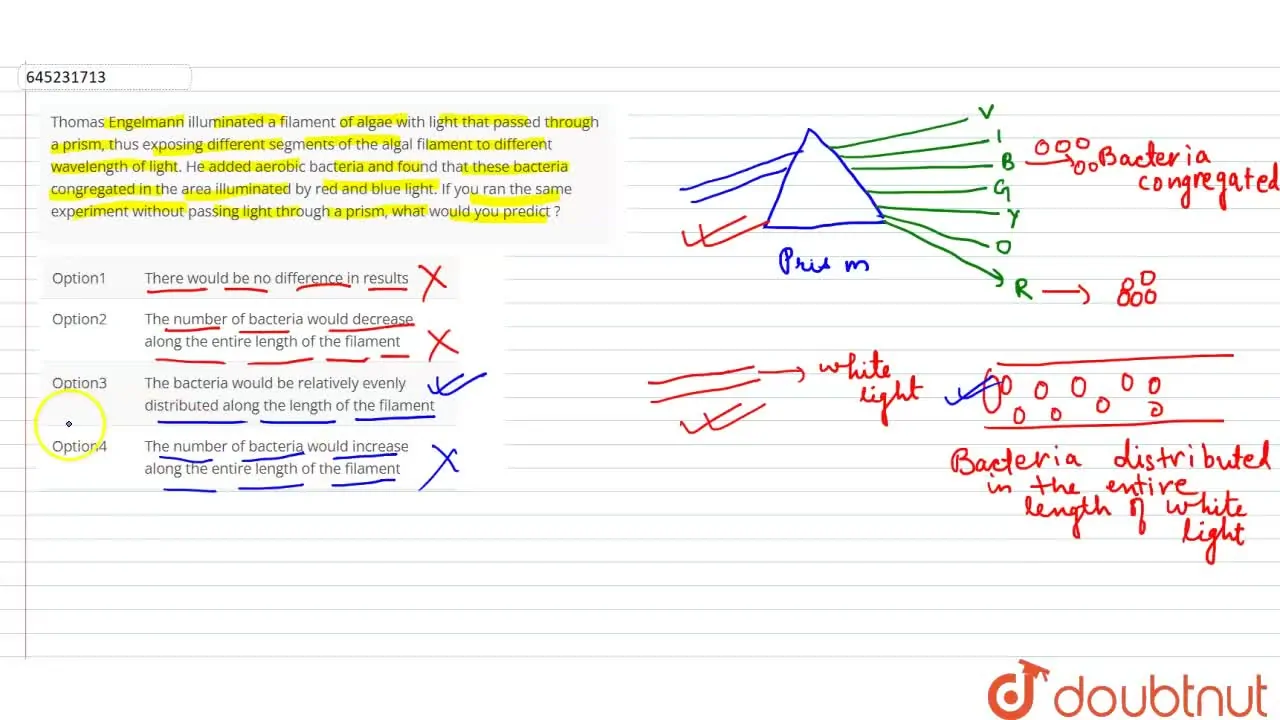 645231713
Thomas Engelmann illuminated a filament of algae with light that passed through
a prism, thus exposing different segments of the algal filament to different
wavelength of light. He added aerobic bacteria and found that these bacteria
congregated in the area illuminated by red and blue light. If you ran the same
experiment without passing light through a prism, what would you predict ?
Option1 There would be no difference in results
Option2 The number of bacteria would decrease
along the entire length of the filament
Option3 The bacteria would be relatively evenly
distributed along the length of the filament
Option4 The number of bacteria would increase
along the entire length of the filament
V
I
B
G
Y
O
R
Bacteria
congregated
Prism
white
light
Bacteria distributed
in the entire
length of white
light
doubtnut